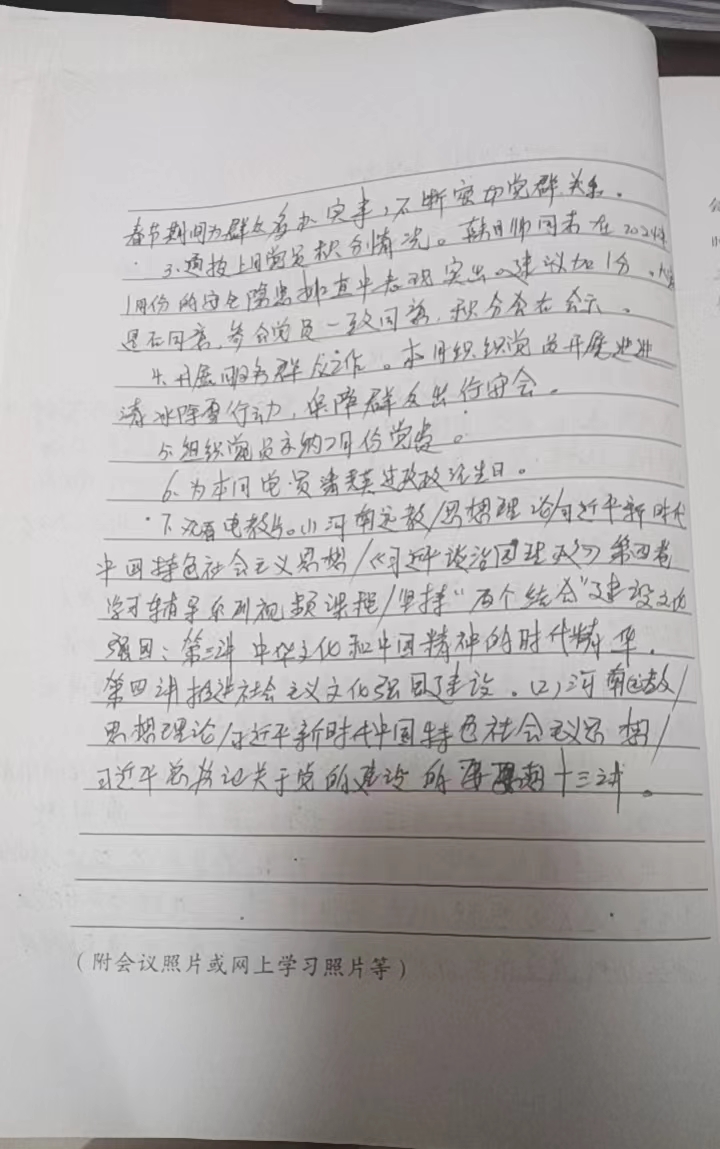 春节期间为群众多办实事，不断密切党群关系。
3.通报上月党员积分情况。韩月帅同志在2024年
1月份的安全隐患排查中表现突出，建议加1分，
是否同意，参会党员一致同意，积分会在会示。
4.开展服务群众工作。本月组织党员开展
清冰除雪行动，保障群众出行安全。
5.组织党员交纳2月份党费。
6.为本月党员过政治生日。
7.观看电教片。(1)河南远教/思想理论/习近平新时代
中国特色社会主义思想/《习近平谈治国理政》第四卷
学习辅导系列视频课程/坚持“两个结合”建设文化
强国：第三讲 中华文化和中国精神的时代精华.
第四讲推进社会主义文化强国建设。(2)河南远教/
思想理论/习近平新时代中国特色社会主义思想/
习近平总书记关于党的建设的十三讲。
(附会议照片或网上学习照片等)